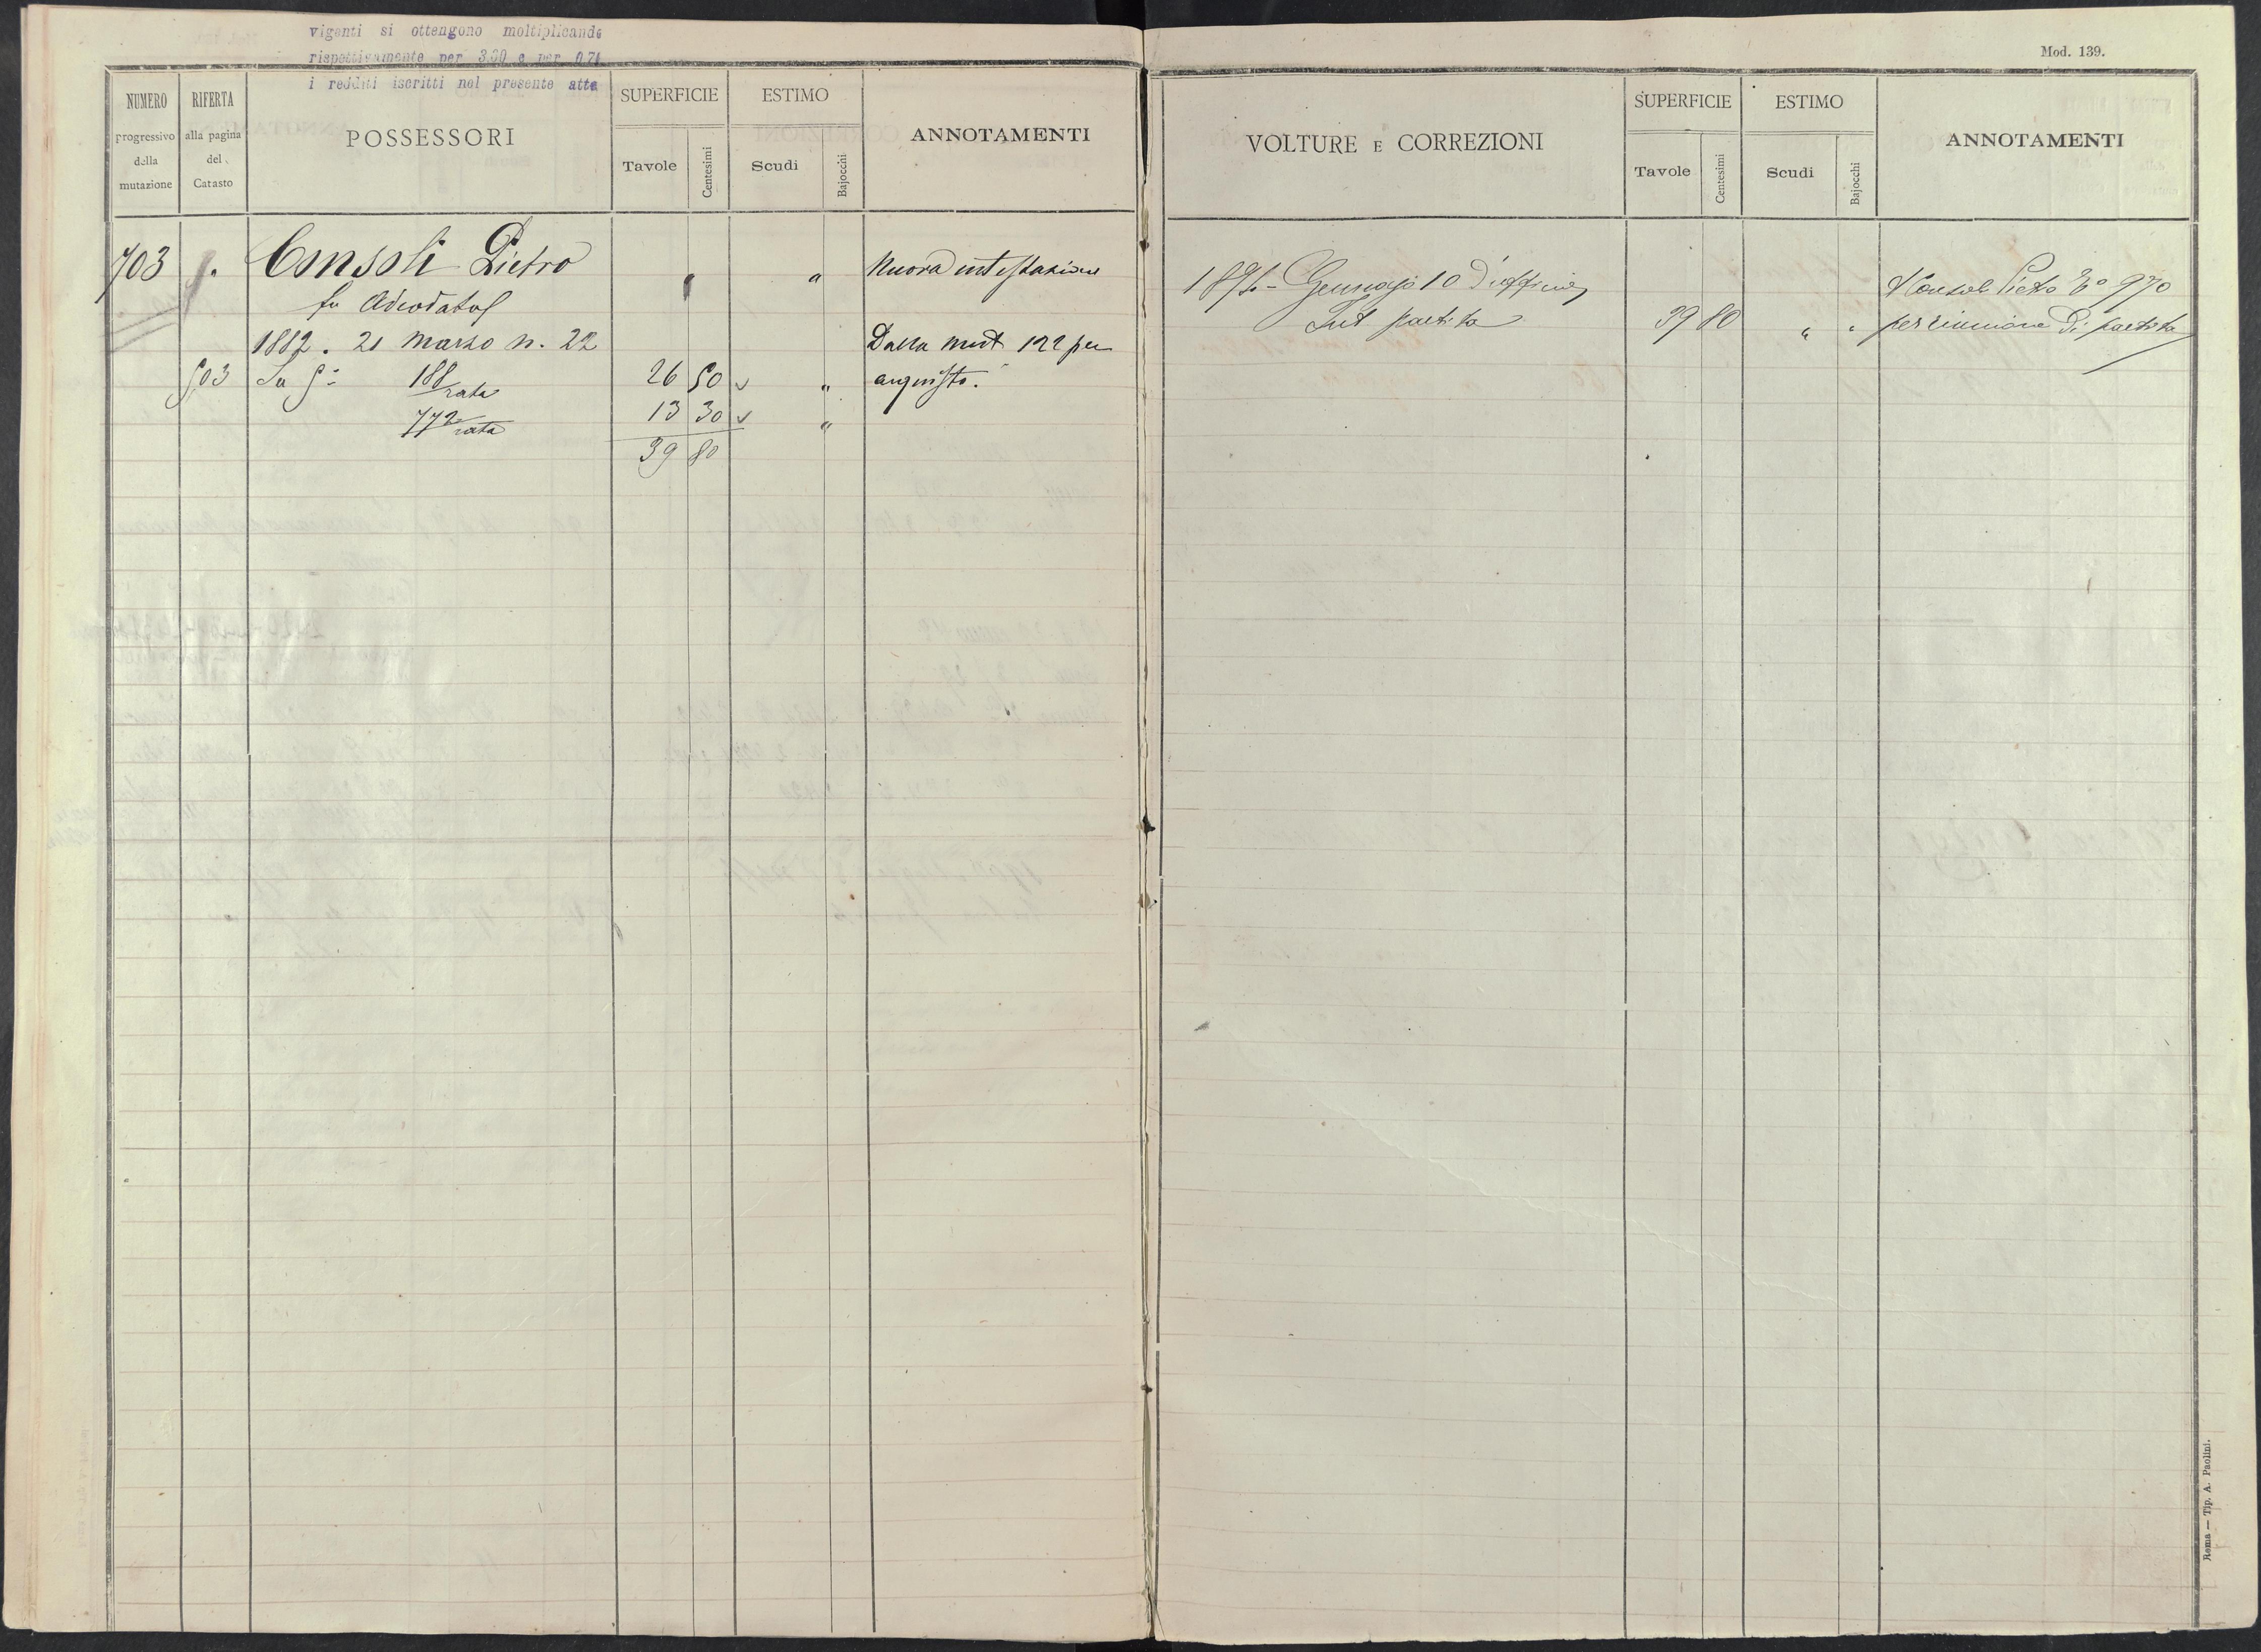 viganti si ottengono moltiplicando
rispettivamente per 3.60 e per 0.74
i redditi iscritti nel presente atto
NUMERO progressivo della mutazione
RIFERTA alla pagina del Catasto
POSSESSORI
SUPERFICIE
Tavole
Centesimi
ESTIMO
Scudi
Bajocchi
ANNOTAMENTI
703 Consoli Pietro " Nuova intestazione
fu Adeodato
1882. 21 Marzo n. 22 Dalla mut 122 per
503 188 rata 26 50 " acquisto.
772 rata 13 30 "
39 80
Mod. 139.
VOLTURE E CORREZIONI
SUPERFICIE
Tavole
Centesimi
ESTIMO
Scudi
Bajocchi
ANNOTAMENTI
Gennajo 10 d'officio Pietro 970
partita 39 80 " " per riunione di partita
Roma — Tip. A. Paolini.